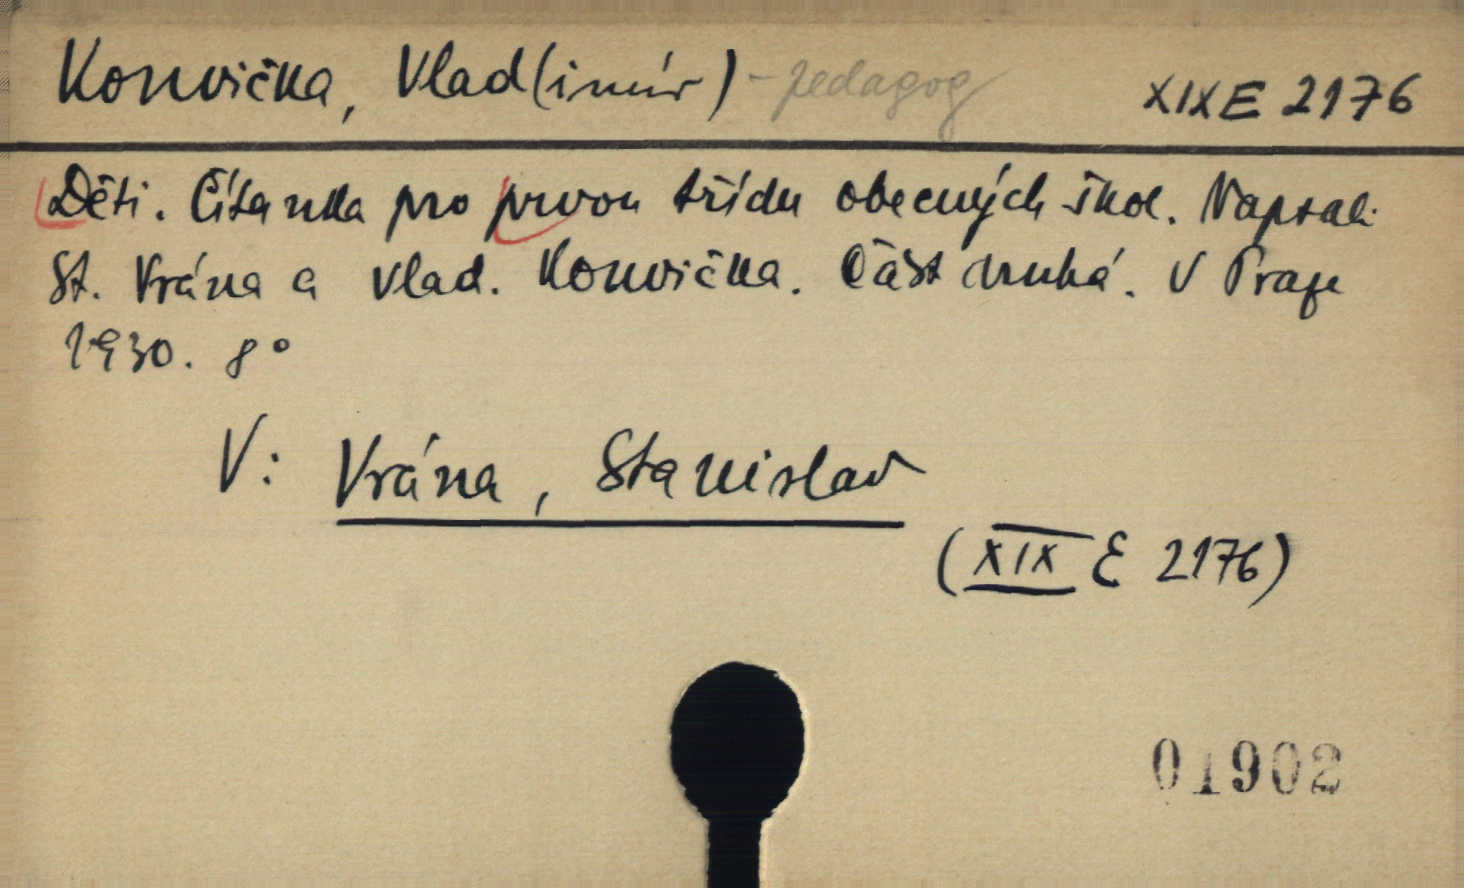 Konvička, Vlad(imír) - pedagog XIX E 2176
Děti. Čítanka pro prvou třídu obecných škol. Napsali
St. Vrána a Vlad. Konvička. Část druhá. V Praze
1930. 8°
V: Vrána, Stanislav
(XIX E 2176)
01902